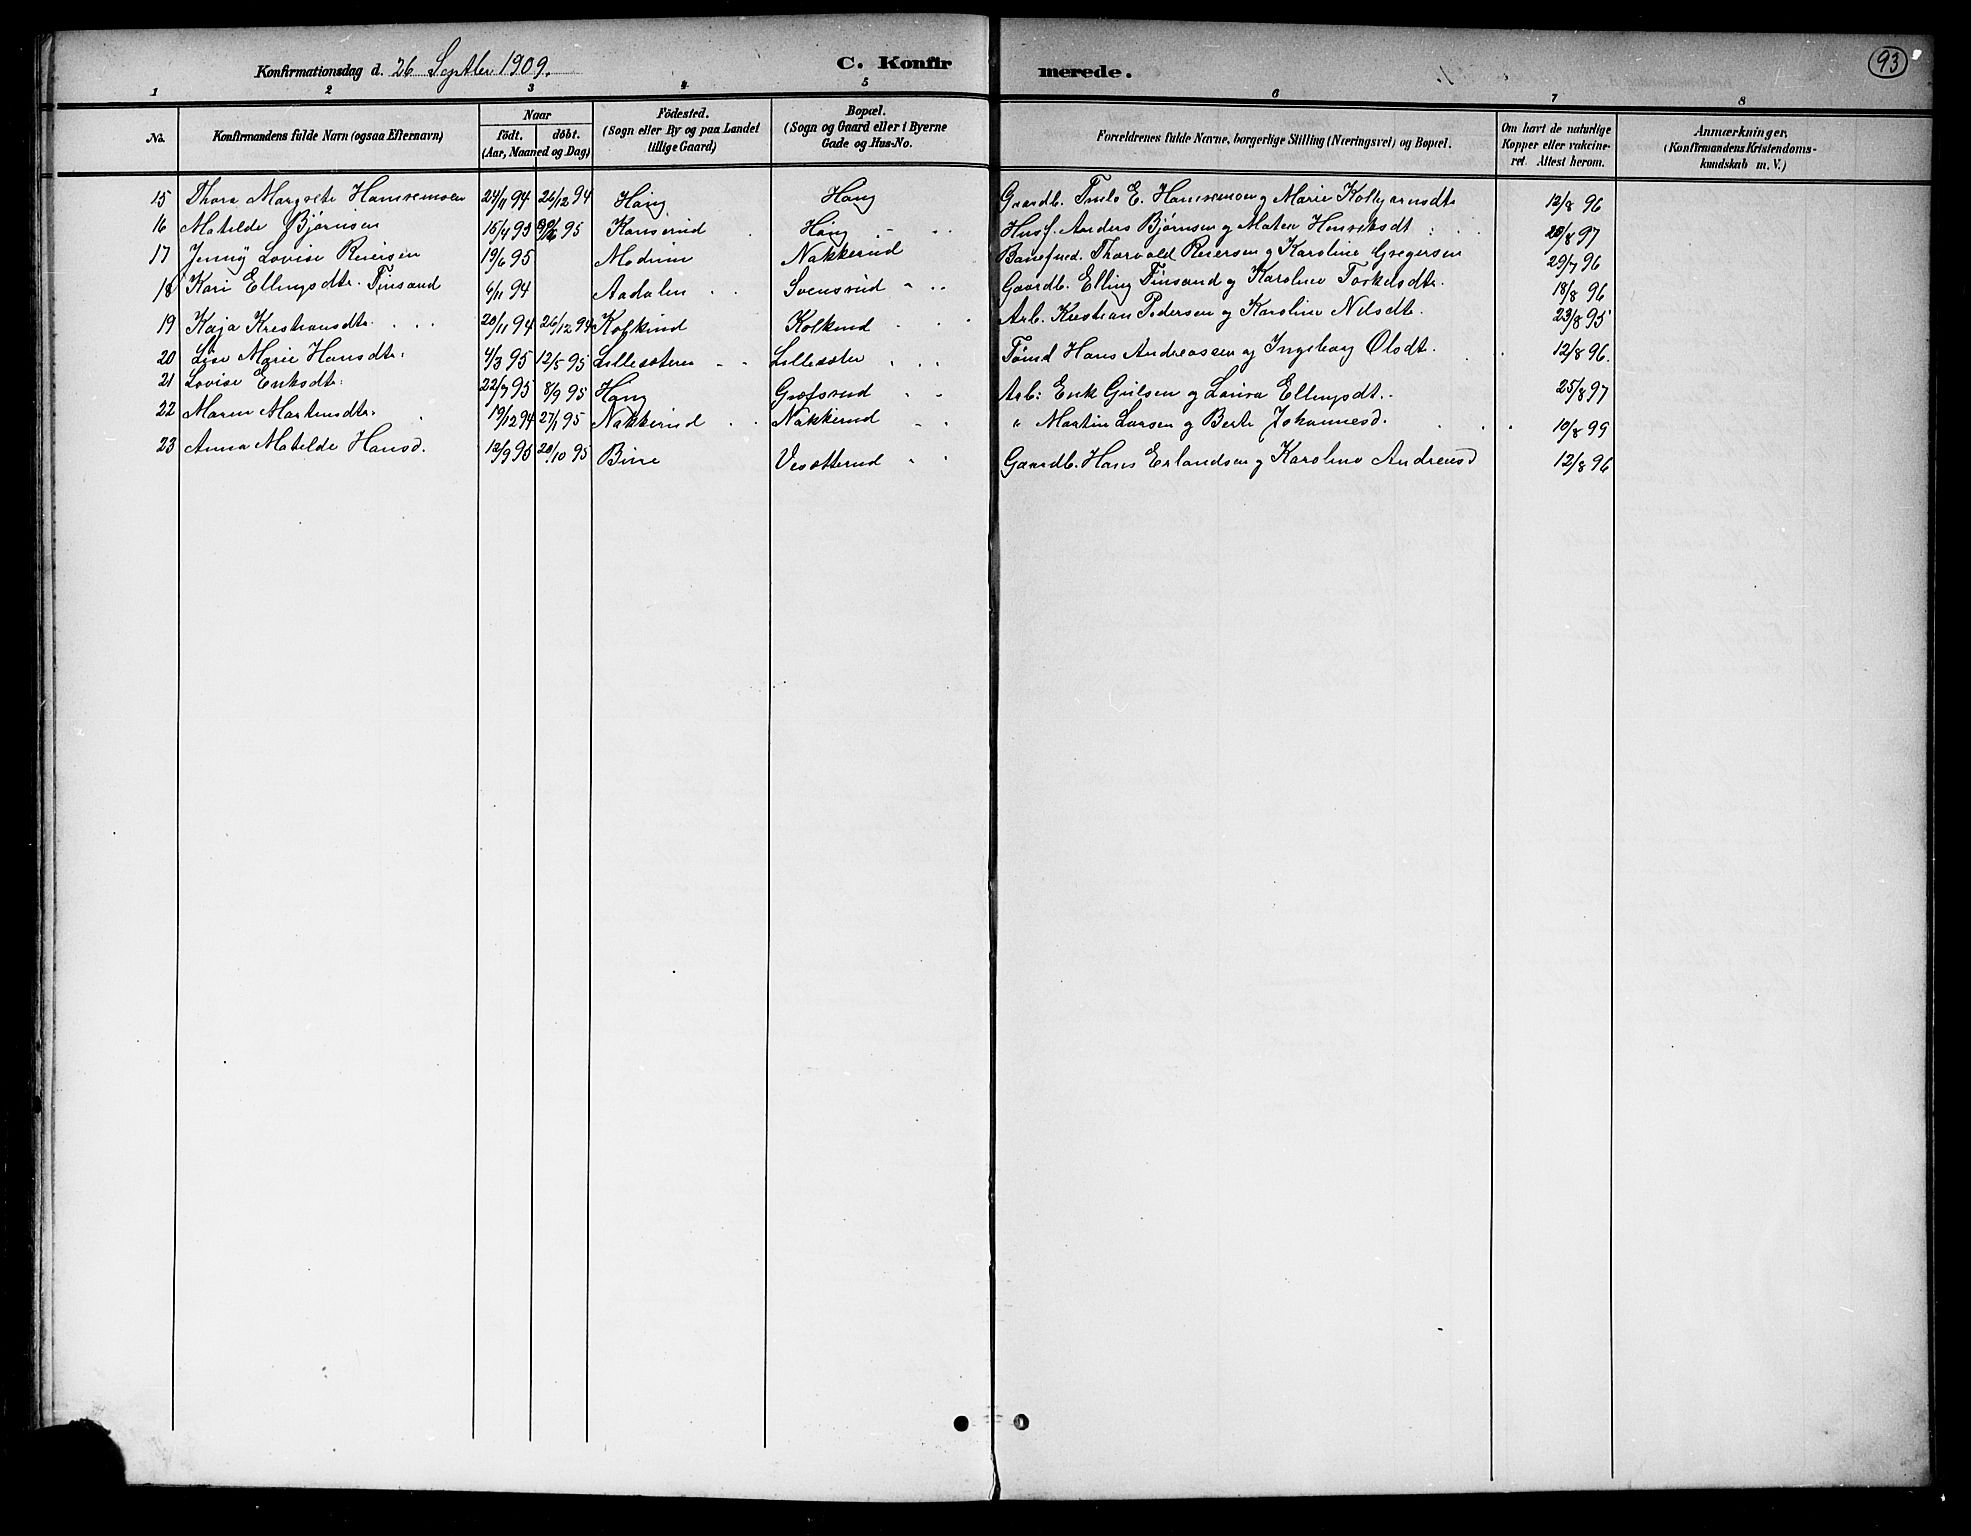 Konfirmationsdag d. 26 Septbr 1909. C. Konfir merede. 93
1 2 3 4 5 6 7 8
No. Konfirmandens fulde Navn (ogsaa Efternavn) Naar födt. döbt. (Aar, Maaned og Dag) Födested. (Sogn eller By og paa Landet tillige Gaard) Bopæl. (Sogn og Gaard eller i Byerne Gade og Hus-No. Forældrenes fulde Navne, borgerlige Stilling (Næringsvei) og Bopæl. Om havt de naturlige Kopper eller vakcineret. Attest herom. Anmærkninger. (Konfirmandens Kristendomskundskab m. V.)
15 Thora Margrete Hansemoen 24/11 94 26/12 94 Haug Haug Gaardb. E. Hansemoen og Marie 12/8 96
16 Matilde Bjørnsen 15/4 95 95 Kanserud Haug Husf. Anders Bjørnsen og Maten Henriksdt 20/8 97
17 Jenny Lovise Reiersen 19/6 95 Modum Nakkerud Banefmd. Thorvald Reiersen og Karoline Gregersen 29/7 96
18 Kari Ellingsdtr. Finsand 6/11 94 Aadalen Svensrud Gaardb. Elling Finsand og Karoline Torkelsdtr. 18/8 96
19 Kaja Kristiansdtr. 20/11 94 26/12 94 Kolkind Kolkind Arb. Kristian Pedersen og Karoline Nilsdt. 23/8 95
20 Lise Marie Hansdtr: 4/3 95 12/5 95 Lillesæteren Lillesæter Tømd Hans Andreassen og Ingeborg Olsdt. 12/8 96.
21 Lovise Eriksdtr: 22/7 95 8/9 95 Haug Græfsrud Arb: Erik Gulsen og Laura Ellingsdt. 25/8 97
22 Maren Martinsdtr. 19/12 94 27/1 95 Nakkerud Nakkerud " Martin Larsen og Berte Johannesd. 10/8 99
23 Anna Matilde Hansd. 12/9 95 20/10 95 Bure Vesætterud Gaardb. Hans Erlandsen og Karoline Andreasd 12/8 96